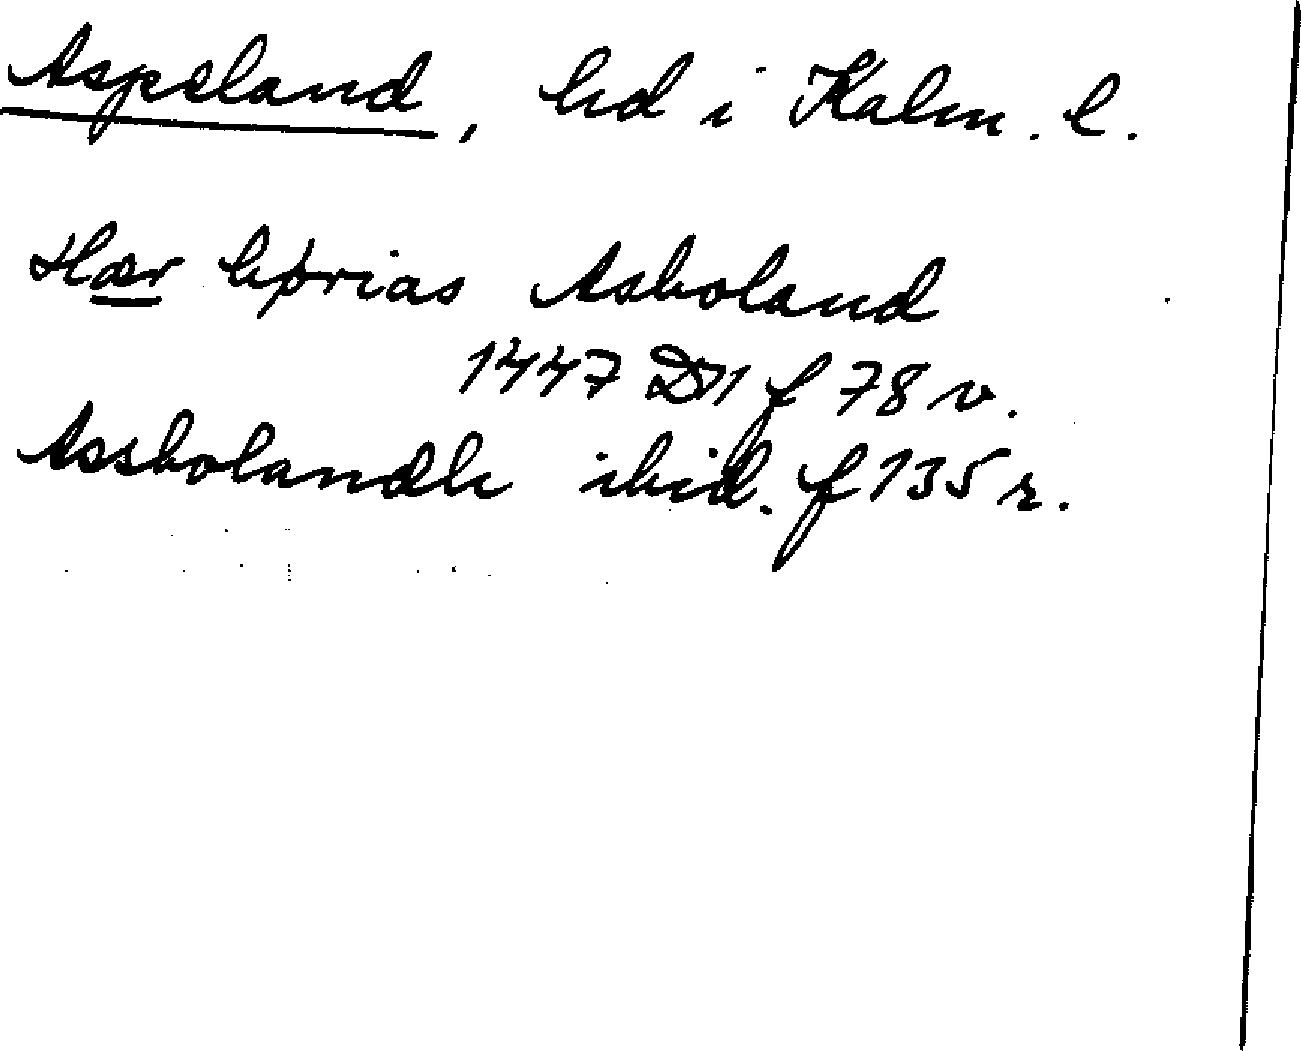 Aspeland, hd i Kalm. l.
Hær hørias Asboland
1447 D11 f 78 v.
Assbolandh ibid. f 135 r.